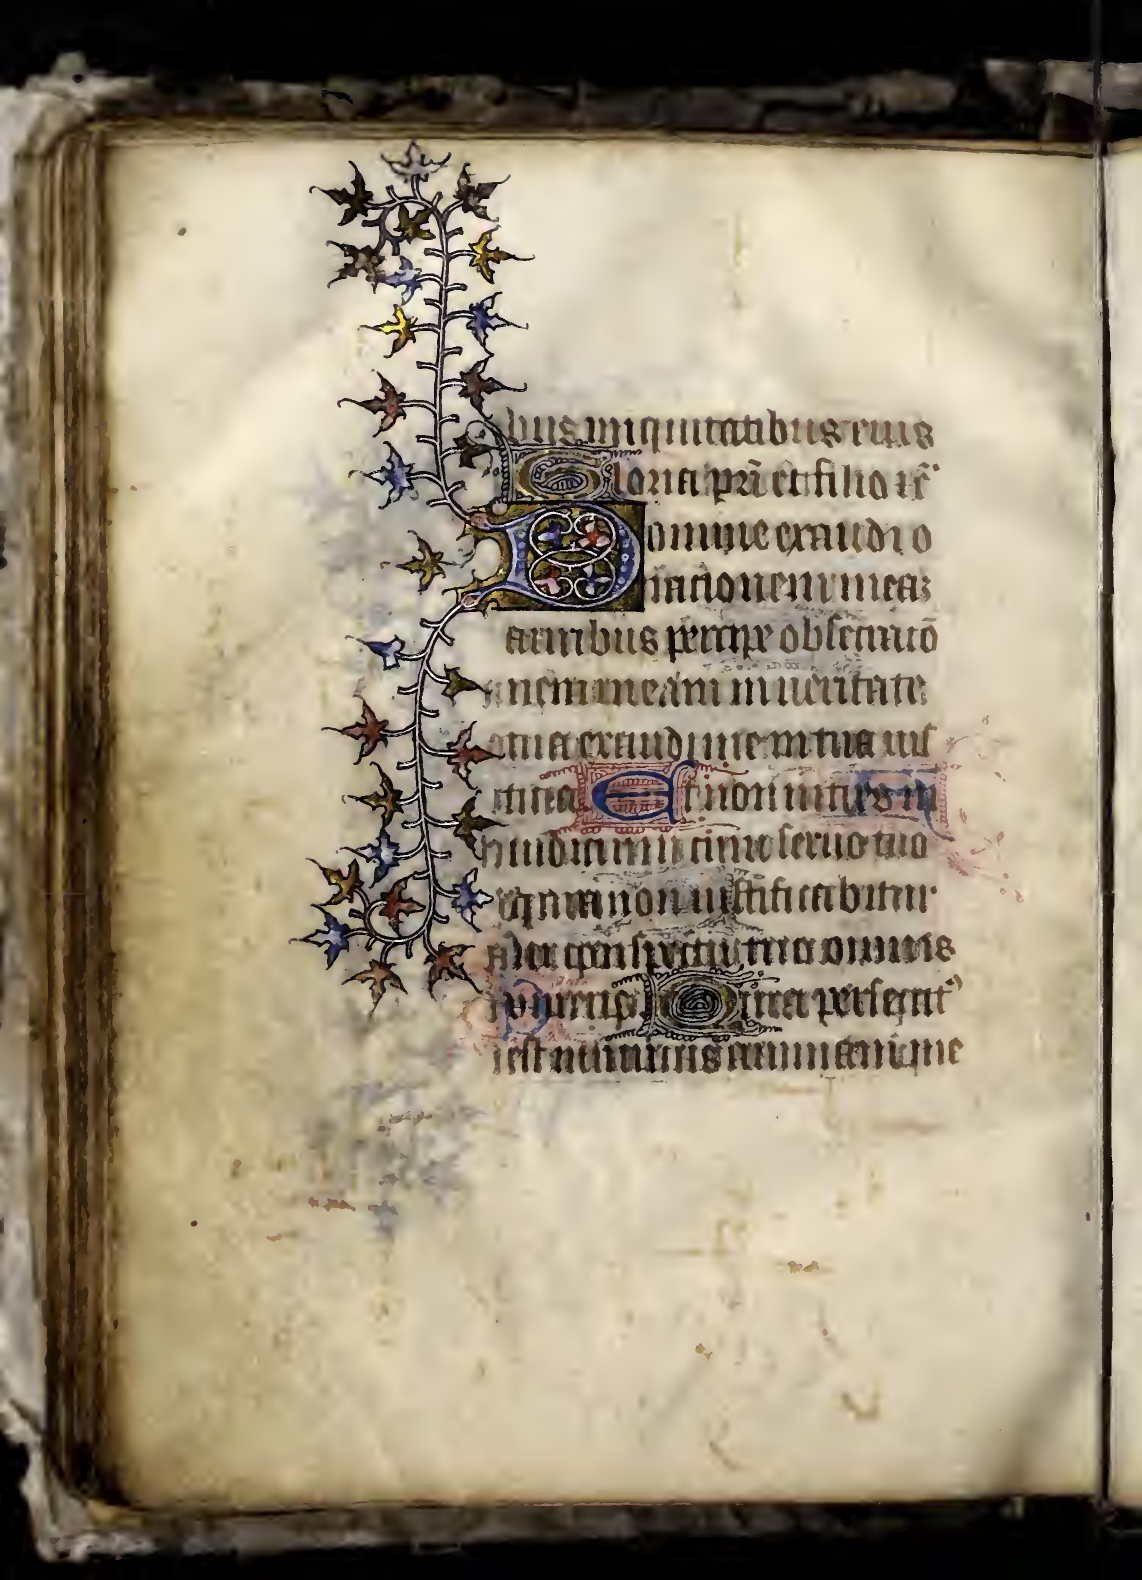 bus iniquitatibus eius
Gloria pr̄i et filio ⁊c̄
Domine exaudi o
rationem meaꝫ
auribus percipe obsecratiō
nem meam in ueritate
tua exaudi me in tua ius
ticia Et non intres in
iudicium cum seruo tuo
quia non iustificabitur
in conspectu tuo omnis
uiuens Quia persecut᷒
est inimicus animam me